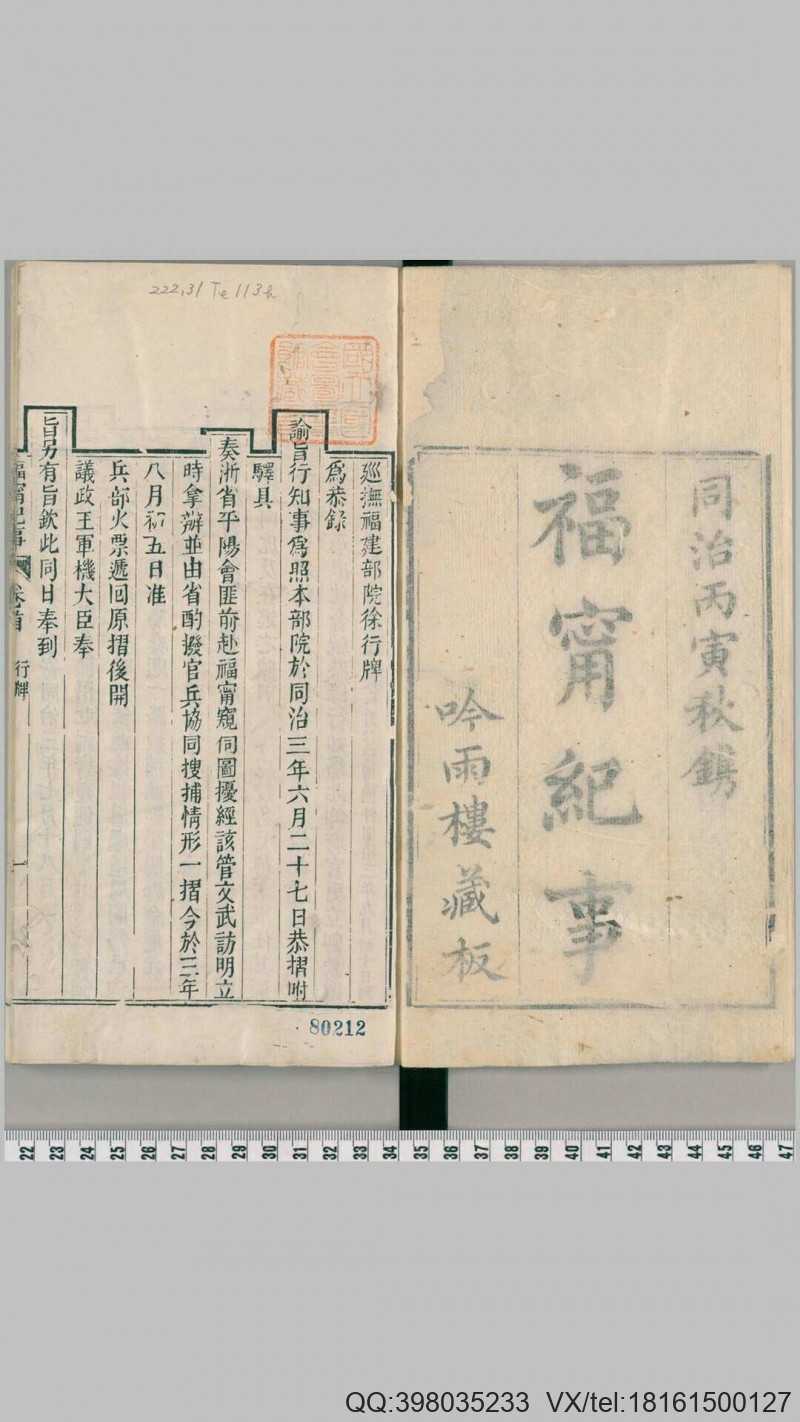 同治丙寅秋鐫
福甯紀事
吟雨樓藏板
222.31 Te113h
廵撫福建部院徐行牌
爲恭錄
諭旨行知事爲照本部院於同治三年六月二十七日恭摺附
驛具
奏浙省平陽會匪前赴福甯窺伺圖擾經該管文武訪明立
時拿辦並由省酌撥官兵協同搜捕情形一摺今於三年
八月初五日准
兵部火票遞回原摺後開
議政王軍機大臣奉
旨另有旨欽此同日奉到
福甯紀事 卷首 行牌 一
80212
22 23 24 25 26 27 28 29 30 31 32 33 34 35 36 37 38 39 40 41 42 43 44 45 46 47
QQ:398035233 VX/tel:18161500127